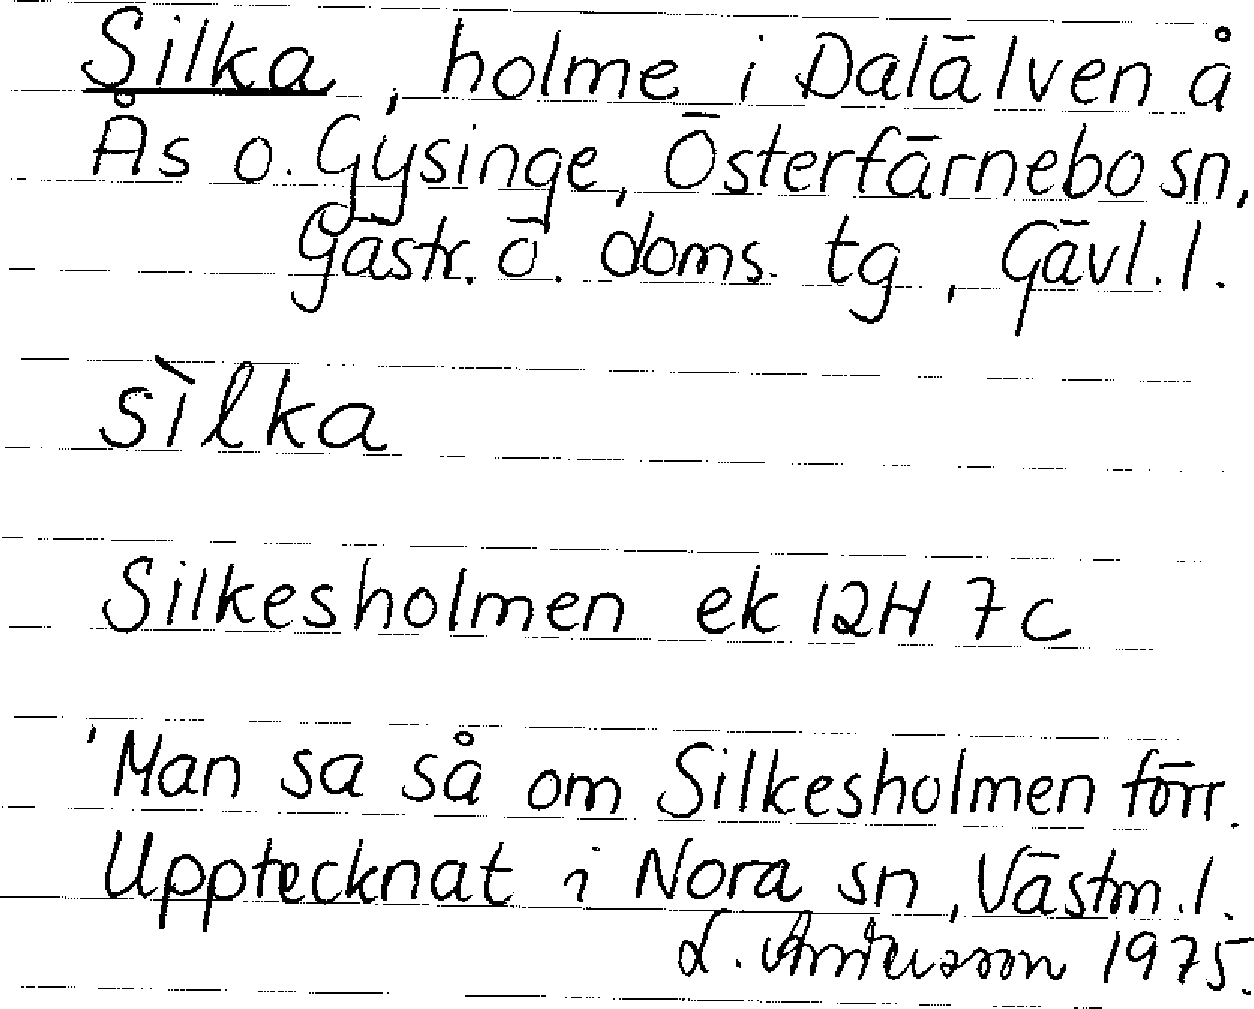 Silka, holme i Dalälven å
Ås o. Gysinge, Österfärnebo sn,
Gästr. ö. doms. tg, Gävl. l.
sìlka
Silkesholmen ek 12H 7c
'Man sa så om Silkesholmen förr.
Upptecknat i Nora sn, Västm. l.
L. Andersson 1975.